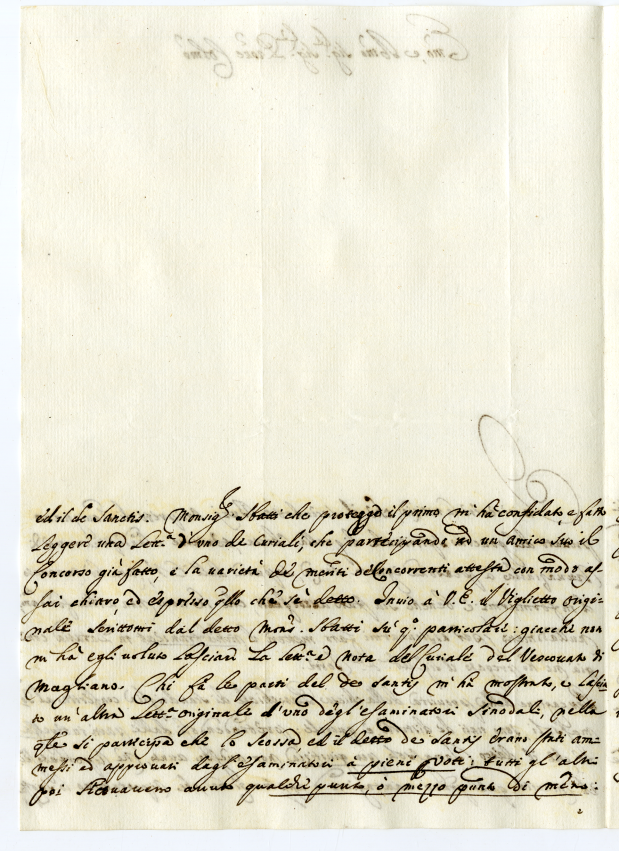 ed il de Sanctis. Monsig.r Sbatti che protegge il primo m'ha confidato, e fatto
leggere una Lett.a d'uno de Curiali, che participando ad un amico suo il
Concorso già fatto, e la varietà de meriti de Concorrenti attesta con modo as-
sai chiaro, ed espresso q̃llo che s'è detto. Invio à V.E. il Viglietto origi-
nale scrittomi dal detto Mons.r Sbatti sù q.o particolare: giacchè non
m'ha egli voluto lasciare la Lett.a ò nota del Curiale del Vescovato di
Magliano. Chi fà le parti del de Santis m'ha mostrato, e lascia-
to un'altra Lett.a originale d'uno degl'esaminatori Sinodali, nella
q̃le si participa che lo Scossa, ed il detto de Santis erano stati am-
messi ed approvati dagl'esaminatori à pieni voti: tutti gl'altri
poi avevano avuto qualche punto, ò mezzo punto di meno: